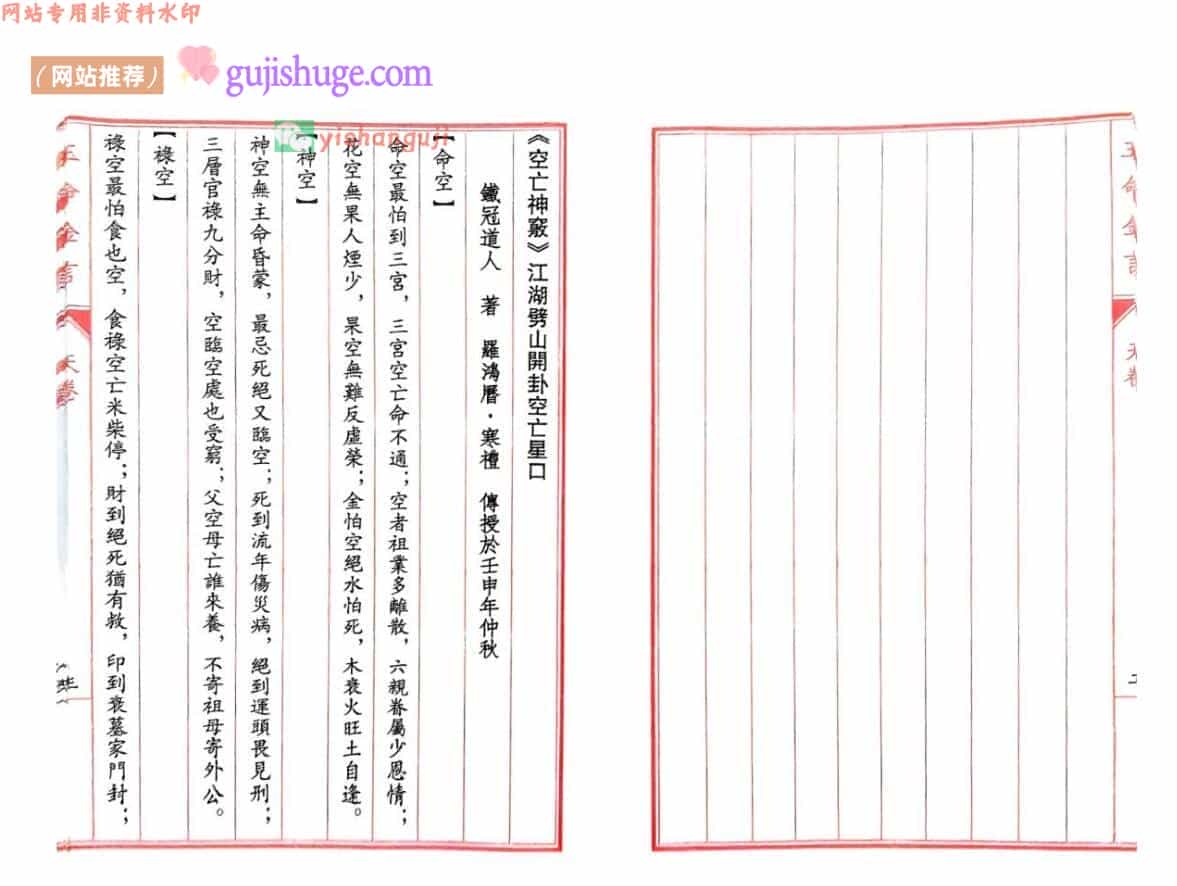 网站专用非资料水印
（网站推荐）
gujishuge.com
yishanguji
《空亡神竅》江湖劈山開卦空亡星口
鐵冠道人 著 羅鴻曆·寒禮 傳授於壬申年仲秋
【命空】
命空最怕到三宮，三宮空亡命不通；空者祖業多離散，六親眷屬少恩情；
花空無果人煙少，果空無難反虛榮；金怕空絕水怕死，木衰火旺土自逢。
【神空】
神空無主命昏蒙，最忌死絕又臨空；死到流年傷災病，絕到運頭畏見刑；
三層官祿九分財，空臨空處也受窮；父空母亡誰來養，不寄祖母寄外公。
【祿空】
祿空最怕食也空，食祿空亡米柴停；財到絕死猶有救，印到衰墓家門封；
天卷